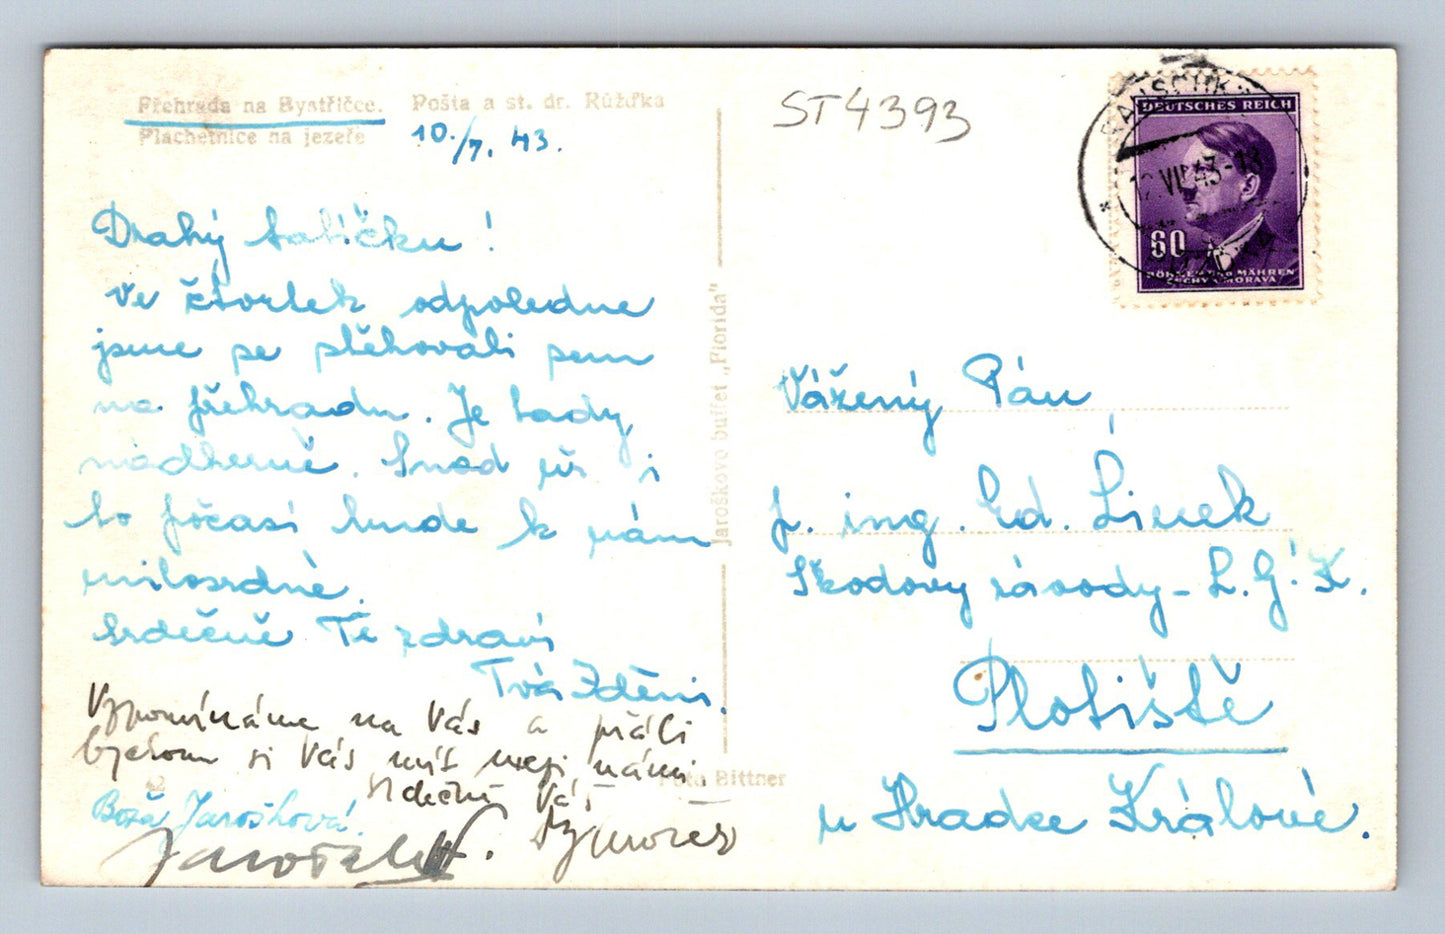 Přehrada na Bystřičce. Pošta a st. dr. Růžďka
Plachetnice na jezeře
10./7. 43.
ST4393
DEUTSCHES REICH
12.VII.43-18
60
BÖHMEN UND MÄHREN
ČECHY A MORAVA
Drahý tatíčku!
ve čtvrtek odpoledne
jsme se přehovali sem
na přehradu. Je tady
nádherně. Snad již i
to počasí bude k nám
milosrdné.
Srdečně Tě zdraví
Tvá Zdeni.
Vzpomínáme na Vás a přáli
bychom si Vás míti mezi námi
srdečně Váš
Boža Jarošková.
Jaroškovo buffet „Florida"
Foto Bittner
Vážený Pán
p. ing. Ed. Linek
Škodovy závody - L.G.K.
Plotiště
u Hradce Králové.